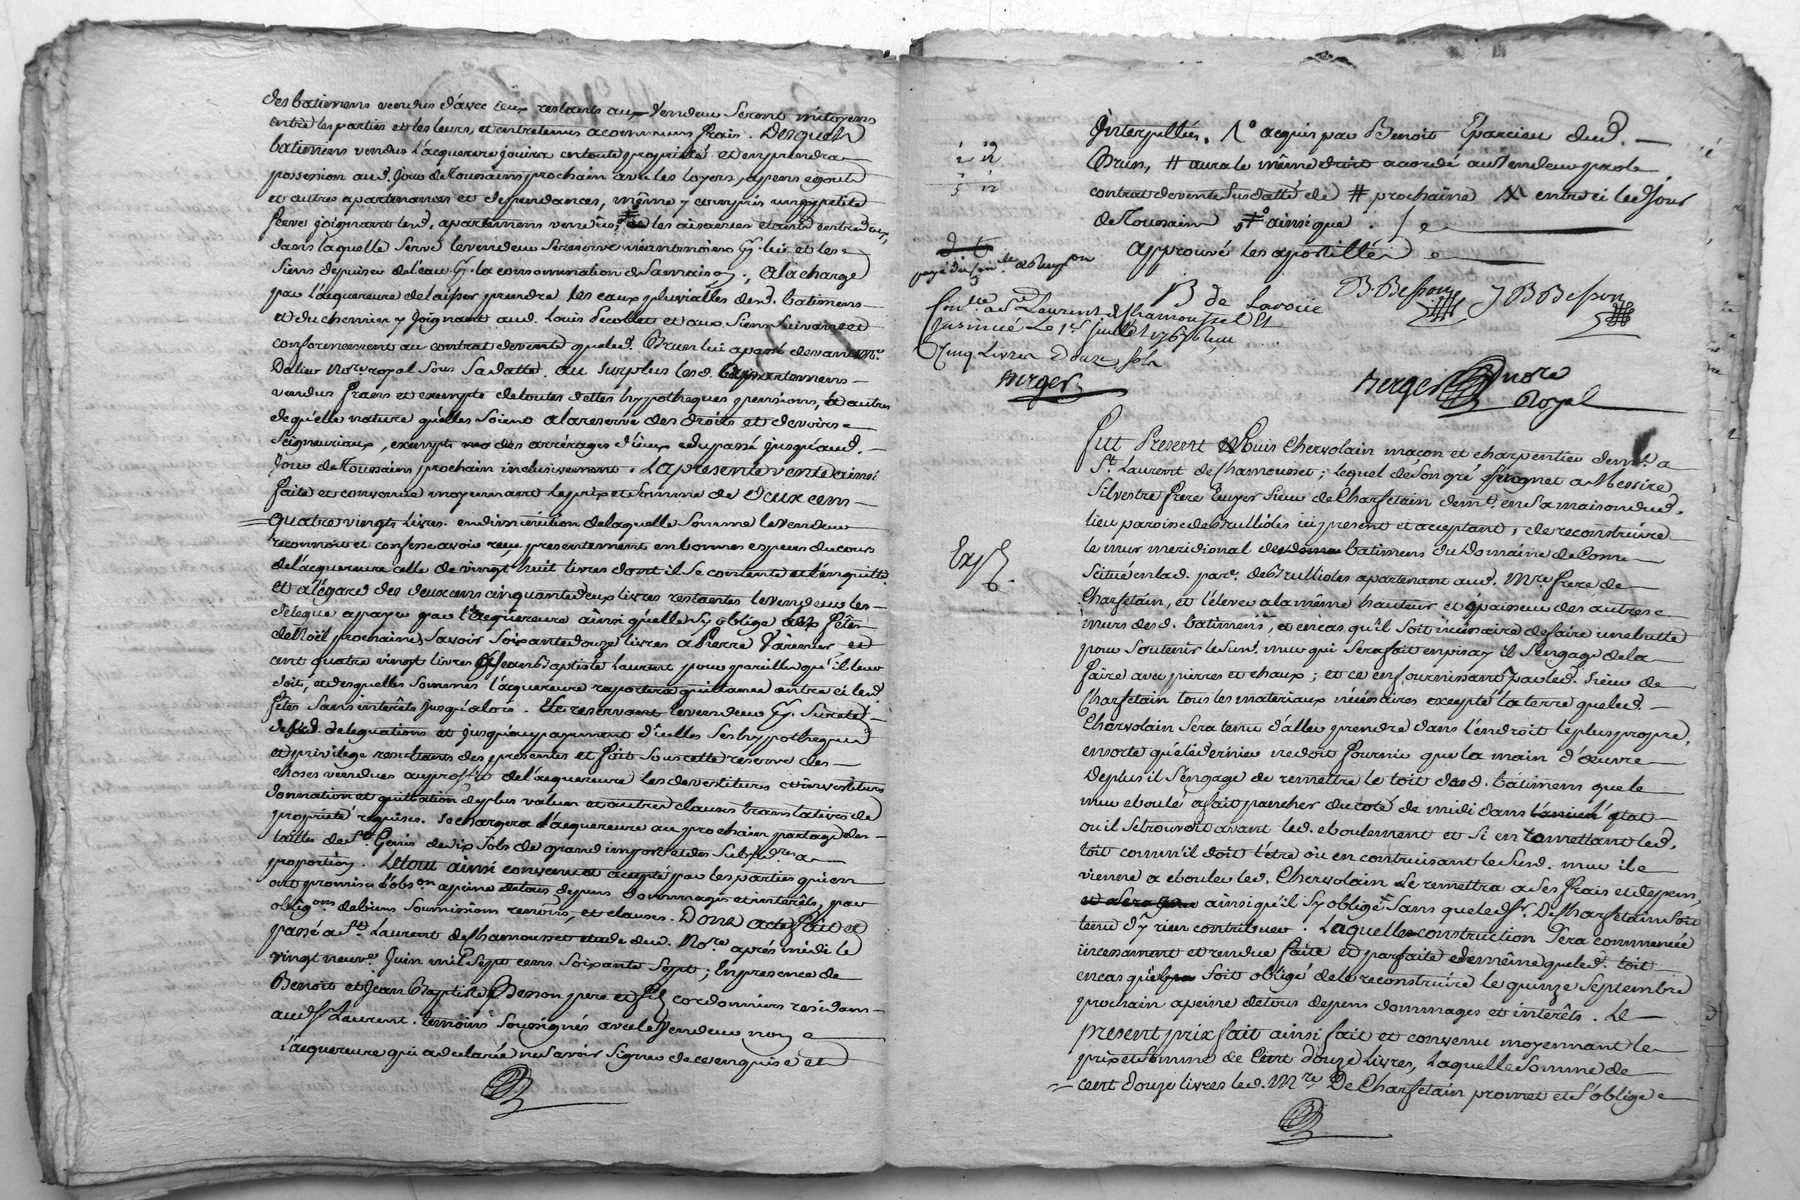 des batimens vendus d'avec ceux restants aux vendeur seront mitoyens
entre les parties et les leurs, et entretenus a communs frais. Desquels
batimens vendus l'acquereure jouira en toute proprieté et en prendra
possession aud. jour de Toussaints prochain avec les loyers, appens egouts
et autres apartenances et dependances, même y compris une petite
serve joignant led. apartemens vendus, les aisances etants entre deux,
dans laquelle serve le vendeur se reserve neantmoins pr. lui et les
siens de puiser de l'eau pr. la consommation de sa maison; a la charge
par l'acquereure de laisser prendre les eaux pluvialles desd. batimens
et du chemin y joignant aud. Louis Decollet et aux siens suivant et
conformement au contrat de vente que led. Brun lui a passé devant Me.
Dalier Nore. royal sous sa datte. au surplus lesd. apartemens
vendus francs et exempts de toutes dettes hypotheques pensions, et autres
de quelle nature quelles soient a la reserve des droits et devoirs
seigneuriaux, exempts des arrérages d'iceux du passé jusqu'aud.
jour de Toussaints prochain inclusivement. La presente vente ainsi
faite et convenue moyennant le prix et somme de Deux cens
quatre vingts livres. en diminution de laquelle somme le vendeur
reconnoit et confesse avoir reçu presentement en bonnes especes du cours
de l'acquereure celle de vingt huit livres dont il se contente et l'en quitte
et a l'égard des deux cens cinquante deux livres restantes le vendeur les
delegue a payer par l'acquereure ainsi quelle s'y oblige aux fêtes
de Noël prochaine, savoir soixante douze livres a Pierre Varenier et
cent quatre vingt livres a Jean Baptiste Laurent pour pareille qu'il leur
doit, et desquelles sommes l'acquereure raportera quittance entre ci lesd.
fêtes sans interêts jusqu'alors. se reservant le vendeur pr. sureté
desd. delegations et jusqu'au payement d'icelles ses hypotheques
et privilege resultants des presentes et fait sous cette réserve des
choses vendues au profit de l'acquereure les devestitures et investitures
donnation et quittation de plus values et autres clauses translatives de
propriété requises. se chargera l'acquereure au prochain partage des
tailles de St. Genis de dix sols de grand impot et des subsd.res a
proportion. Le tout ainsi convenu et accepté par les parties qui en
ont promis l'obson a peine de tous depens dommages et interêts, par
obligons de biens soumissions renons. et clauses. Dont acte fait et
passé a St. Laurent de Chamousset etude dud. Nore après midi le
vingt neuve. juin mil sept cens soixante sept; en presence de
Benoit et Jean Baptiste Besson pere et fils cordonniers residans
aud. St Laurent. temoins soussignés avec le vendeur non
l'acquereure qui a declarée ne savoir signer de ce enquise et
interpellée. 1o acquis par Benoit Eparcieu dud.
Brun, # aura le même droit accordé au vendeur par le
contrat de vente susdatté de # prochaine X entre ci led. jour
de Toussaint # ainsi que
approuvé les apostilles
B de Lavoüe
B. Besson
J B Besson
Conlle. a St Laurent de Chamousset et
insinué le 1er juillet 1767 reçu
Cinq livres douze sols
Berger
Berger Nore
Royal
Fut Present Louis Chervolain maçon et charpentier demt. a
St. Laurent de Chamousset; lequel de son gré promet a Messire
Silvestre frere Ecuyer sieur de Charfetain demt. en sa maison dud.
lieu paroisse de Brullioles ici present et acceptant, de reconstruire
le mur meridional des batimens du Domaine de Conn
scitué en lad. pare. de Brullioles apartenant aud. Mre frere de
Charfetain, et l'élever a la même hauteur et épaisseur des autres
murs desd. batimens, et en cas qu'il soit nécessaire de faire une butte
pour soutenir le susd. mur qui sera fait en pisay il s'engage de la
faire avec pierres et chaux; et ce en fournissant par led. sieur de
Charfetain tous les materiaux nécessaires excepté la terre que led.
Chervolain sera tenu d'aller prendre dans l'endroit le plus propre,
ensorte que le dernier ne doit fournir que la main d'œuvre
De plus il s'engage de remettre le toit desd. bâtimens que le
mur eboulé a fait pancher du coté de midi dans l'état
ou il se trouvoit avant led. eboulement et si en remettant led.
toit comm'il doit l'être ou en construisant le susd. mur il
vienne a ebouler led. Chervolain le remettra a ses frais et depens,
ainsi qu'il s'y oblige sans que led. Sr. De Charfetain soit
tenu d'y rien contribuer. Laquelle construction sera commencée
incessament et rendue faite et parfaite de même que led. toit
en cas qu'il soit obligé de le reconstruire le quinze septembre
prochain a peine de tous depens dommages et interêts. Le
present prix fait ainsi fait et convenu moyennant le
prix et somme de Cent douze livres, laquelle somme de
cent douze livres led. Mre De Charfetain promet et s'oblige